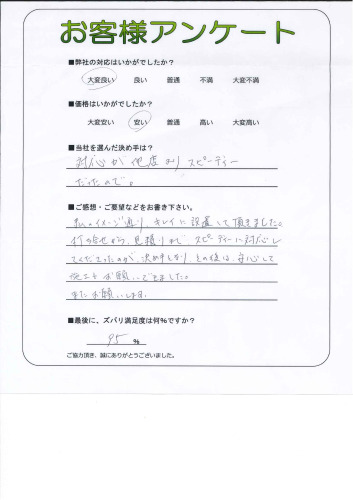 お客様アンケート
■弊社の対応はいかがでしたか?
大変良い 良い 普通 不満 大変不満
■価格はいかがでしたか?
大変安い 安い 普通 高い 大変高い
■当社を選んだ決め手は?
対応が他店よりスピーディー
だったので。
■ご感想・ご要望などをお書き下さい。
私のイメージ通り、キレイに設置して頂きました。
打ち合せから、見積りまで、スピーディーに対応し
てくださったのが、決め手となり その後は、安心して
施工をお願いできました。
またお願いします。
■最後に、ズバリ満足度は何%ですか?
95 %
ご協力頂き、誠にありがとうございました。